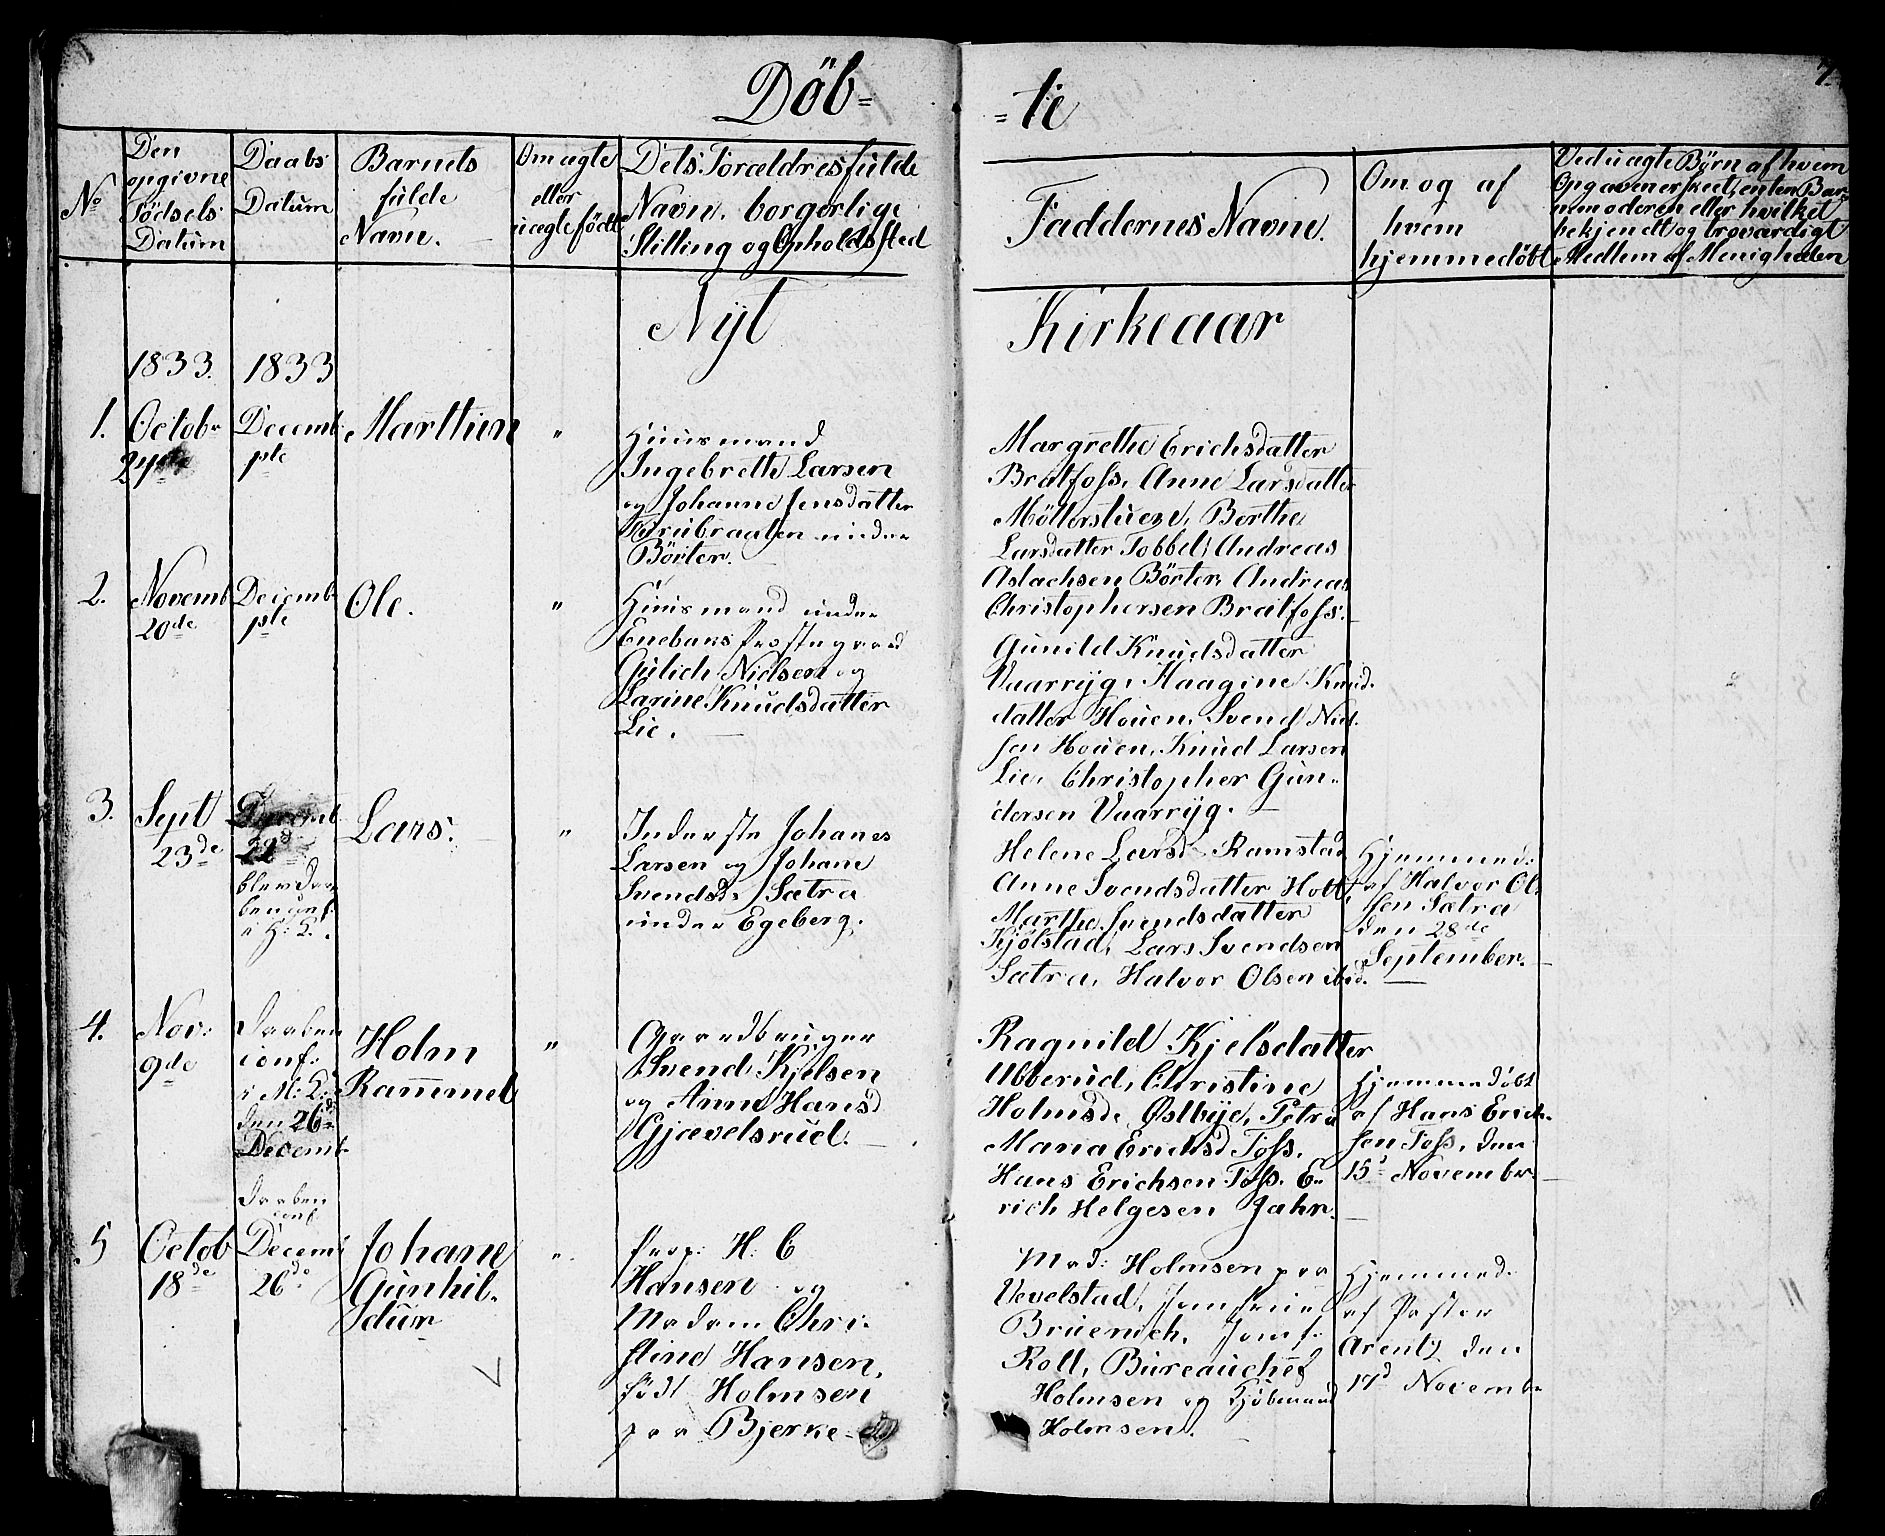 Döb=
=te
7.
No
Den
opgivne
Födsels
Datum
Daabs
Datum
Barnets
fulde
Navn.
Om ægte
eller
uægte födt
Dets Forældres fulde
Navn, borgerlige
Stilling og Opholdssted
Faddernes Navne.
Om og af
hvem
hjemmedöbt
Ved uægte Börn af hvem
Opgaven er skeet, enten Bar-
nmoderen eller hvilket
bekjendt og troværdigt
Medlem af Menigheden
Nyt
Kirkeaar
1833.
1833
1.
Octobr
Decemb
1ste
Marthin
"
Huusmand
Ingebreth Larsen
og Johanne Jensdatter
under
Börter.
Margrethe Erichsdatter
Bratfoss, Anne Larsdatter
Möllerstuene, Berthe
Larsdatter Tobbel, Andreas
Aslachsen Börter, Andreas
Christophersen Bratfoss.
2.
Novemb
20de
Decemb
1ste
Ole.
"
Huusmand under
Enebaks Præstegaard
Gulich Nielsen og
Larine Knudsdatter
Lie.
Gunild Knudsdatter
Vaarryg, Haagine Knud.
datter Houen, Svend Niel.
sen Houen, Knud Larsen
Lie, Christopher Gun-
dersen Vaarryg.
3.
Sept
23de
Decemb
22d
blev Daa
ben conf.
i H: K.
Lars.
"
Inderste Johanes
Larsen og Johane
Svendsd. Sætra
under Egeberg.
Helene Larsd. Ramstad
Anne Svendsdatter Holt,
Marthe Svendsdatter
Kjölstad, Lars Svendsen
Sætra, Halvor Olsen ibid.
Hjemmed:
af Halvor Ol
sen Sætra
den 28de
September.
4.
Nov:
9de
Daaben
conf:
i M: K:
den 26d
Decemb
Holm
Rammel
"
Gaardbruger
Svend Kjelsen
og Anne Hansd
Gjævelsrud.
Ragnild Kjelsdatter
Ubberud, Christine
Holmsd. Østbye, Petra
Maria Erichsd Foss,
Hans Erichsen Foss, E-
rich Helgesen Jahr.
Hjemmedöbt
af Hans Erich-
sen Foss, den
15d Novembr.
5
Octob
18de
Daaben
conf
Decemb
26de
Johane
Gunhil-
dur
"
H: C
Hansen og
Madam Chri-
stine Hansen,
födt Holmsen
paa Bjerke
Mad: Holmsen paa
Vevelstad, Jomfrue
Bruenich, Jomf.
Roll, Bureauchef
Holmsen og Kjöbmand
Holmsen.
Hjemmed.
af Pastor
Arentz den
17d Novemb.